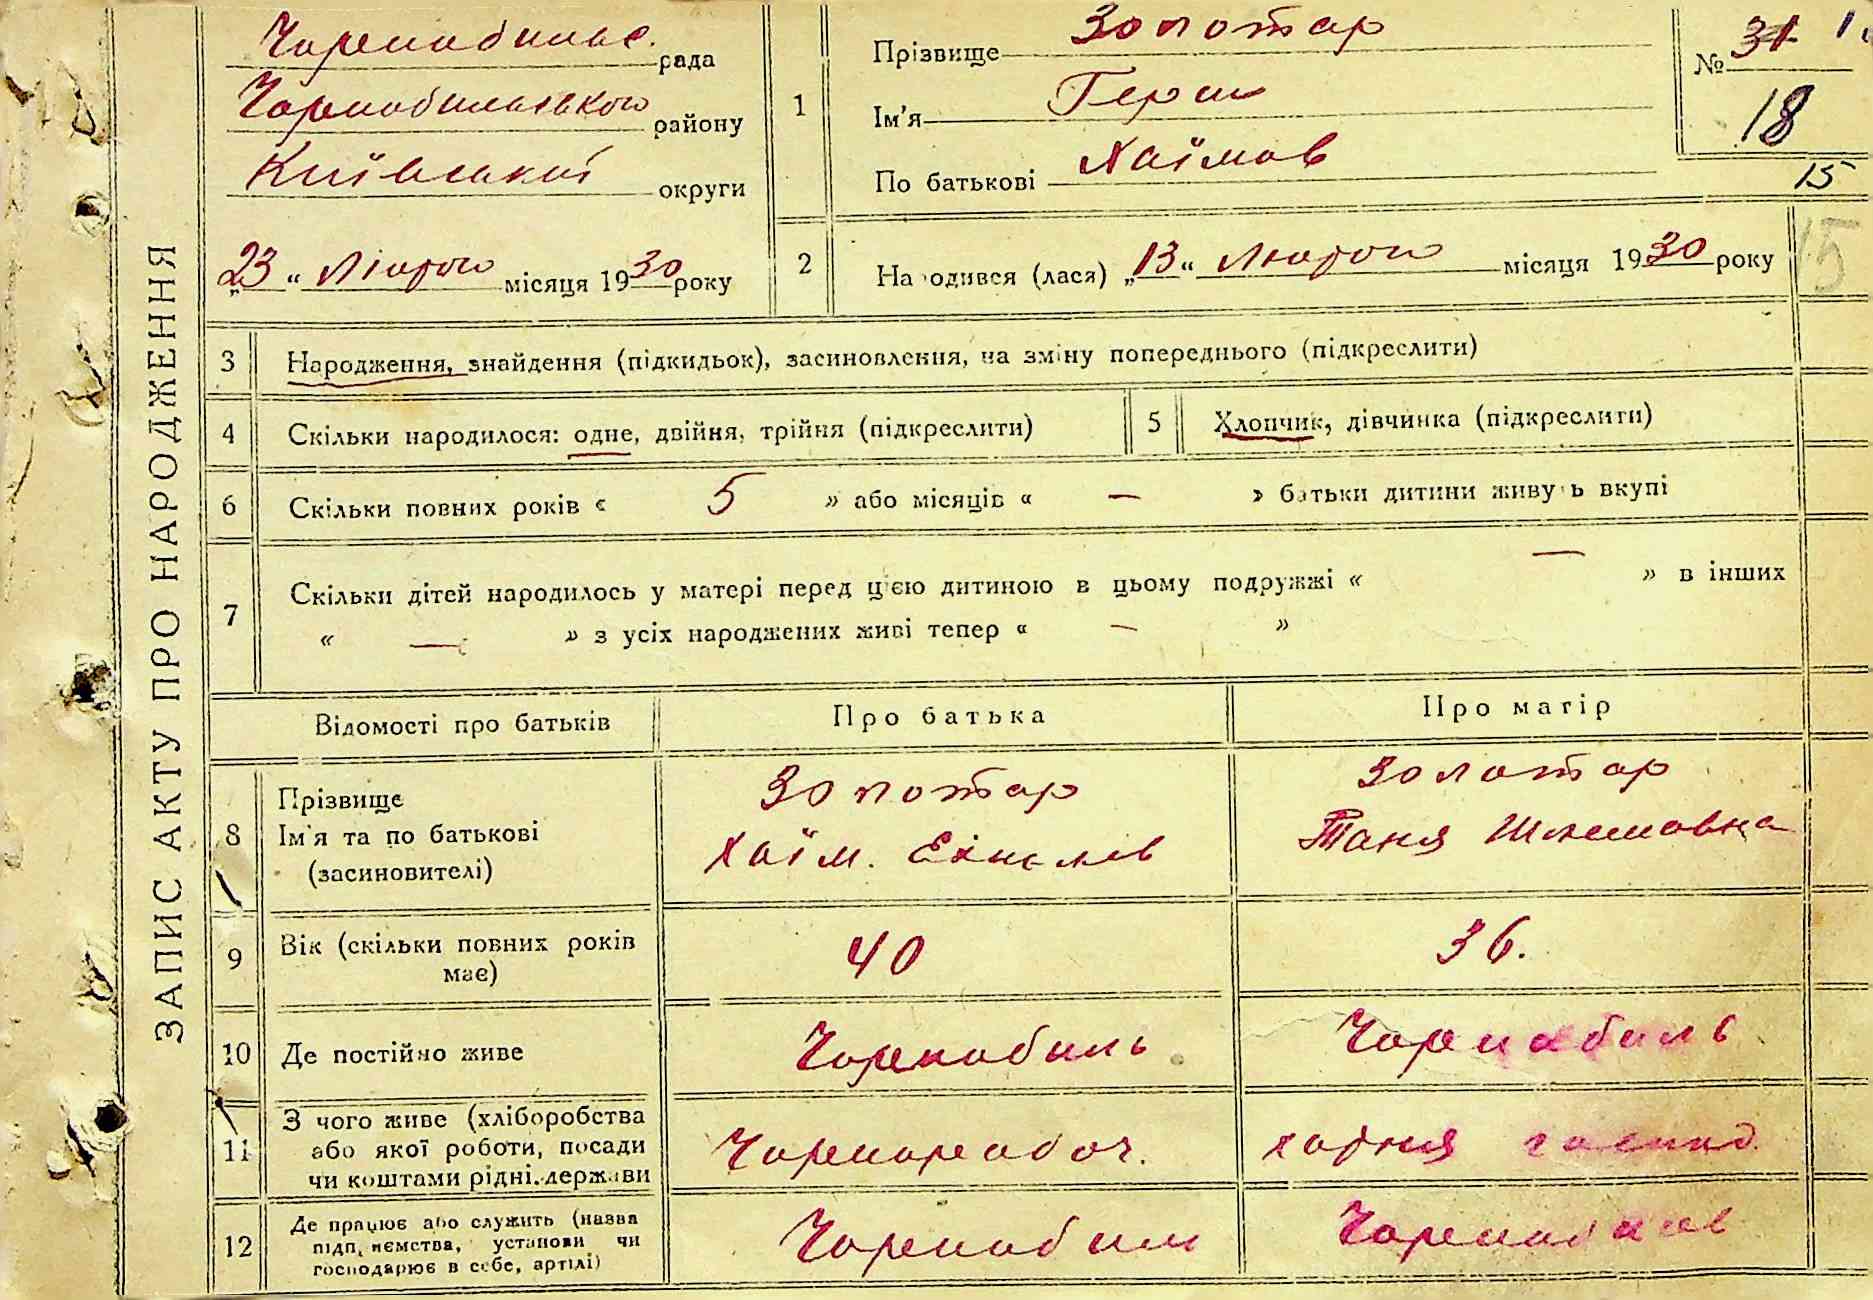 ЗАПИС АКТУ ПРО НАРОДЖЕННЯ
Чорнобильс. рада
Чорнобильського району
Київської округи
„23“ Лютого місяця 1930 року
1
Прізвище Золотар
Ім'я Герш
По батькові Хаїмов
№ 31
18
15
15
2
Народився (лася) „13“ Лютого місяця 1930 року
3 Народження, знайдення (підкидьок), засиновлення, на зміну попереднього (підкреслити)
4 Скільки народилося: одне, двійня, трійня (підкреслити)
5 Хлопчик, дівчинка (підкреслити)
6 Скільки повних років « 5 » або місяців « — » батьки дитини живуть вкупі
7 Скільки дітей народилось у матері перед цією дитиною в цьому подружжі « — » в інших
« — » з усіх народжених живі тепер « — »
Відомості про батьків Про батька Про матір
8 Прізвище
Ім'я та по батькові
(засиновителі)
Золотар
Хаїм
Золотар
Таня
9 Вік (скільки повних років
має)
40
36.
10 Де постійно живе
Чорнобиль
Чорнобиль
11 З чого живе (хліборобства
або якої роботи, посади
чи коштами рідні, держави
Чорнорабоч.
господ.
12 Де працює або служить (назва
підприємства, установи чи
господарює в себе, артілі)
Чорнобил
Чорнобил